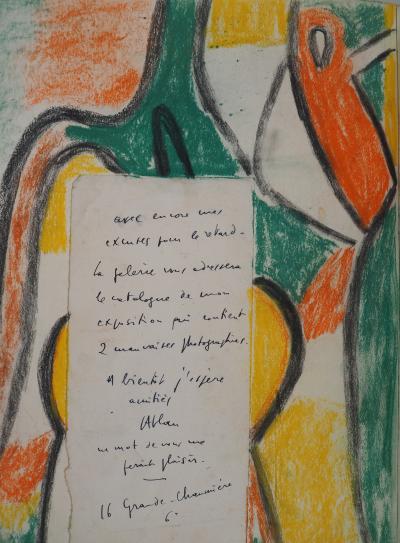 avec encore mes
excuses pour le retard.
La galerie vous adressera
le catalogue de mon
exposition qui contient
2 mauvaises photographies.
A bientôt j'espère
amitiés
Atlan
un mot de vous me
ferait plaisir.
16 Grande-Chaumière
6°